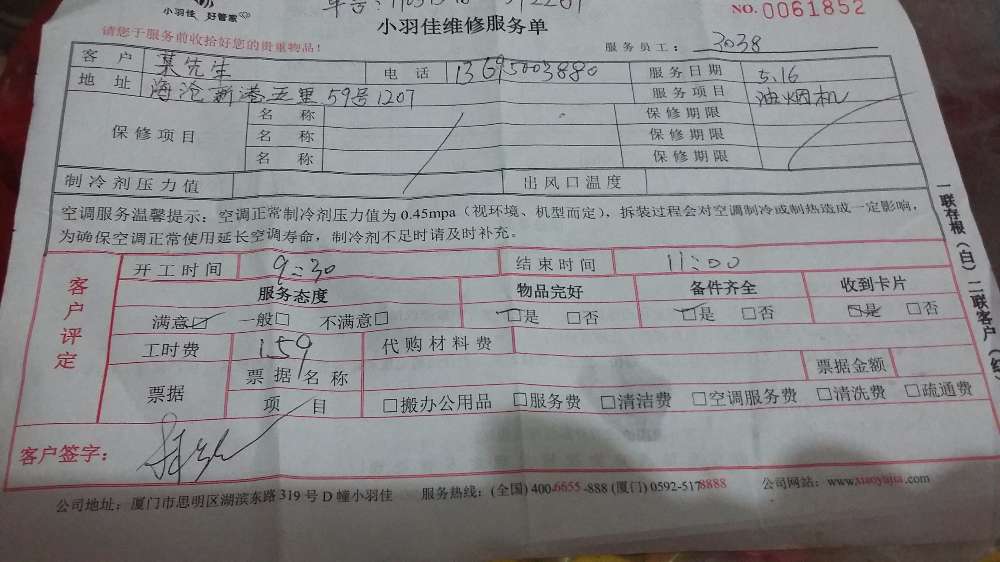 小羽佳 好管家
小羽佳维修服务单
NO.0061852
请您于服务前收拾好您的贵重物品！
服务员工： 3038
客户 先生 电话 13695003880 服务日期 5.16
地址 海沧新港五里59号1207 服务项目 油烟机
保修项目
名称 保修期限
名称 保修期限
名称 保修期限
制冷剂压力值 出风口温度
空调服务温馨提示：空调正常制冷剂压力值为0.45mpa（视环境、机型而定），拆装过程会对空调制冷或制热造成一定影响，
为确保空调正常使用延长空调寿命，制冷剂不足时请及时补充。
客户评定
开工时间 9:30 结束时间 11:00
服务态度 物品完好 备件齐全 收到卡片
满意☑ 一般□ 不满意□ ☑是 □否 ☑是 □否 ☑是 □否
工时费 159 代购材料费
票据 票据名称 票据金额
项目 □搬办公用品 □服务费 □清洁费 □空调服务费 □清洗费 □疏通费
客户签字：
公司地址：厦门市思明区湖滨东路319号D幢小羽佳 服务热线：(全国) 400-6655-888 (厦门) 0592-5178888 公司网站：www.xiaoyujia.com
一联存根（白）二联客户（